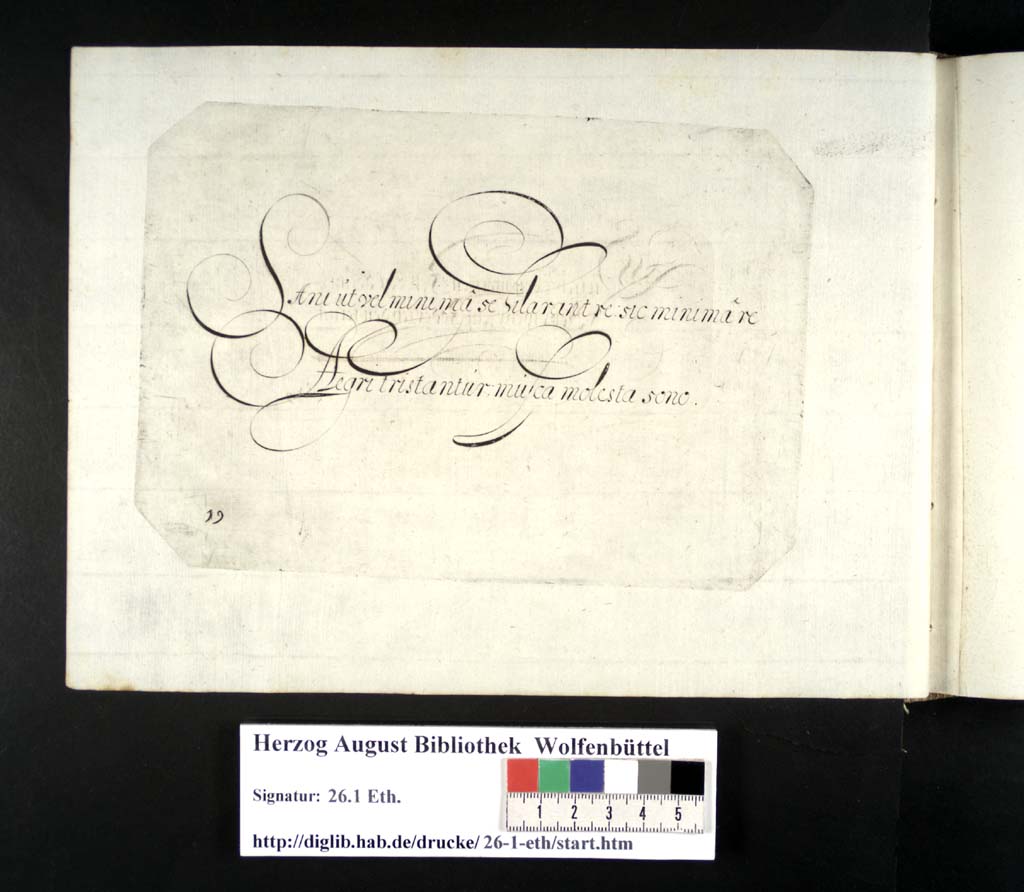 Sani ut vel minimâ se hilarant re sic minimâ re
Aegri tristantur. musca molesta sono.
19
Herzog August Bibliothek Wolfenbüttel
Signatur: 26.1 Eth.
1 2 3 4 5
http://diglib.hab.de/drucke/ 26-1-eth/start.htm